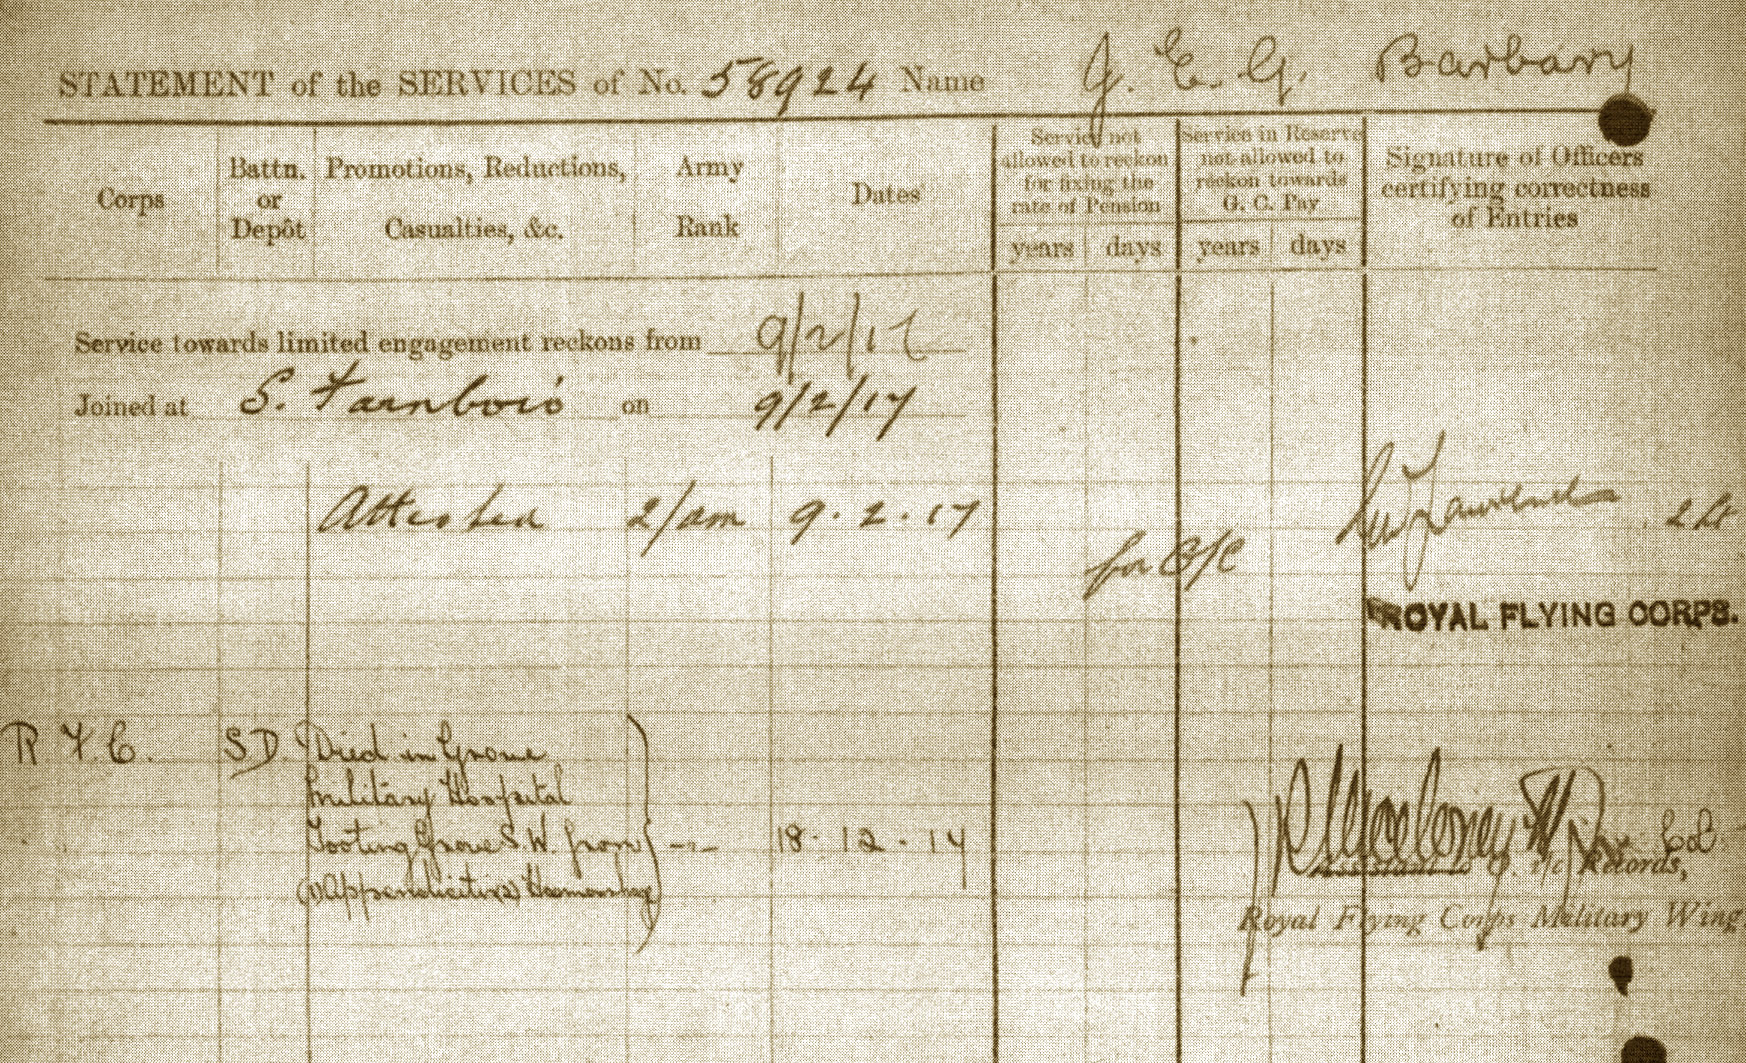 STATEMENT of the SERVICES of No. 58924 Name J. E. G. Barbary
Corps
Battn. or Depôt
Promotions, Reductions, Casualties, &c.
Army Rank
Dates
Service not allowed to reckon for fixing the rate of Pension
years days
Service in Reserve not allowed to reckon towards G. C. Pay
years days
Signature of Officers certifying correctness of Entries
Service towards limited engagement reckons from 9/2/17
Joined at S. Farnboro' on 9/2/17
Attested 2/am 9.2.17 Lawrence 2 Lt
for O/C
ROYAL FLYING CORPS.
R. F. C. S.D. Died in Grove
Military Hospital
Tooting Grove S.W. from 18.12.17 Col
(1) Appendicitis (2) Haemorrhage
Assistant to O. i/c Records,
Royal Flying Corps Military Wing